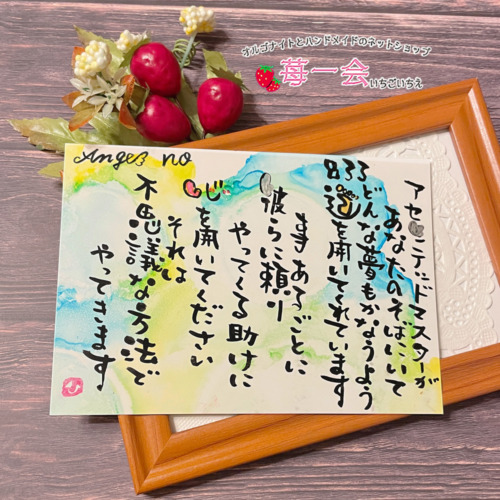 オルゴナイトとハンドメイドのネットショップ
苺一会
いちごいちえ
Angel no
833
アセンテッドマスターが
あなたのそばにいて
どんな夢もかなうよう
道を開いてくれています
事あるごとに
彼らに頼り
やってくる助けに
心を開いてください
それは
不思議な方法で
やってきます